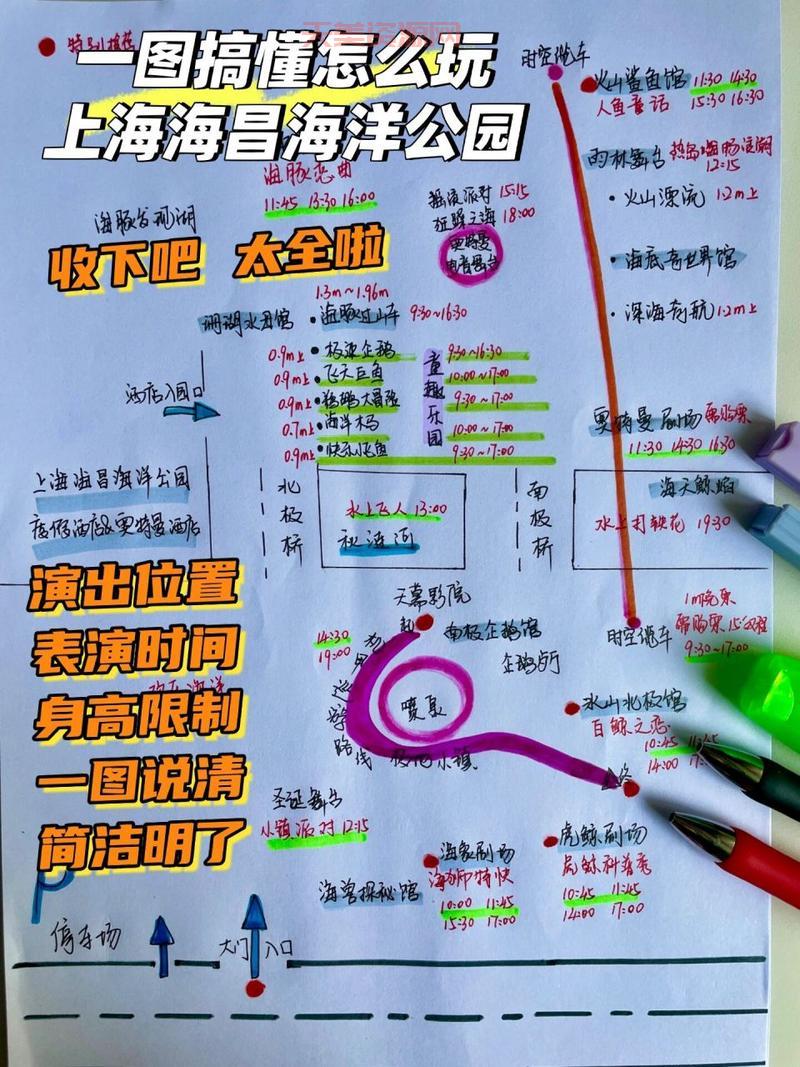 天美资源网
特别推荐
一图搞懂怎么玩
上海海昌海洋公园
时空缆车
火山鲨鱼馆 11:30 14:30
人鱼童话 15:30 16:30
雨林舞台
12:15
火山漂流 1.2m上
海底奇世界馆
深海奇航 1.2m上
海豚恋曲
11:45 13:30 16:00
海豚发现湖
15:15
18:00
奥特曼
收下吧 太全啦
1.3m~1.96m
珊瑚水母馆
海豚过山车 9:30~16:30
0.9m上 极速企鹅 9:30~16:30
0.9m上 飞天巨鱼 10:00~17:00
0.9m上 鲲鹏大冒险 9:30~17:00
0.7m上 海洋木马 10:00~17:00
0.9m上 快乐小飞鱼 9:30~17:00
童趣乐园
酒店入园口
奥特曼剧场 需购票
11:30 14:30 16:30
上海海昌海洋公园
度假酒店&奥特曼酒店
北极桥
水上飞人 13:00
南极桥
海天鲸焰
水上打铁花 19:30
演出位置
表演时间
身高限制
一图说清
简洁明了
天幕影院
起
南极企鹅馆
企鹅厅
14:30
19:00
花车巡游路线
喷泉
终
时空缆车
1m免票
需购票
9:30~17:00
冰山北极馆
白鲸之恋
10:45 11:45
14:00 17:
圣诞舞台
小镇派对 12:15
海象剧场
海狮特快
10:00 11:45
15:30 17:00
虎鲸剧场
虎鲸科普秀
10:45 11:45
14:00 17:00
海兽探秘馆
P
停车场
大门入口